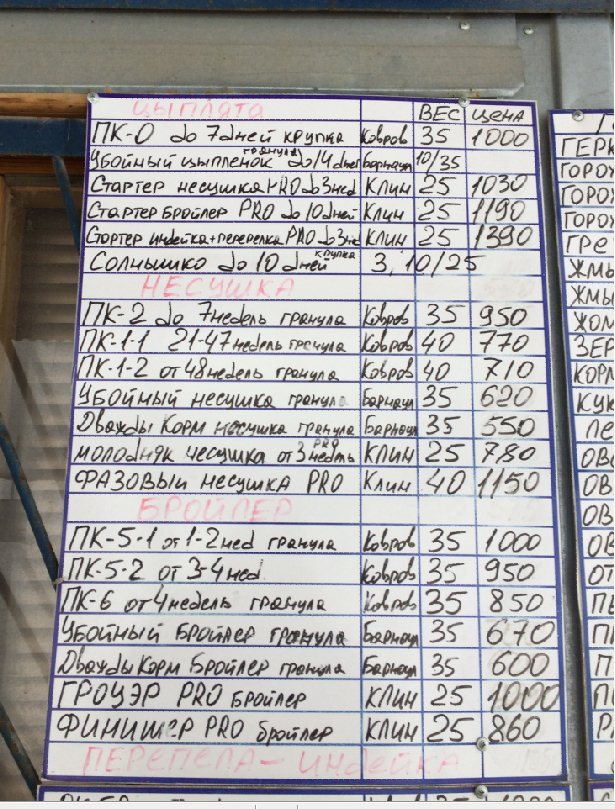 ЦЫПЛЯТА ВЕС ЦЕНА
ПК-0 до 7 дней крупка Ковров 35 1000
Убойный цыпленок гранула до 14 дней Барнаул 10/35
Стартер несушка PRO до 3 нед Клин 25 1030
Стартер бройлер PRO до 10 дней Клин 25 1190
Стартер индейка+перепелка PRO до 3 нед Клин 25 1390
Солнышко до 10 дней крупка 3, 10/25
НЕСУШКА
ПК-2 до 7 недель гранула Ковров 35 950
ПК-1-1 21-47 недель гранула Ковров 40 770
ПК-1-2 от 48 недель гранула Ковров 40 710
Убойный несушка гранула Барнаул 35 620
Дважды Корм несушка гранула Барнаул 35 550
молодняк несушка от 3 недель PRO Клин 25 780
ФАЗОВЫЙ несушка PRO Клин 40 1150
БРОЙЛЕР
ПК-5-1 от 1-2 нед гранула Ковров 35 1000
ПК-5-2 от 3-4 нед Ковров 35 950
ПК-6 от 4 недель гранула Ковров 35 850
Убойный Бройлер гранула Барнаул 35 670
Дважды Корм Бройлер гранула Барнаул 35 600
ГРОУЭР PRO бройлер КЛИН 25 1000
ФИНИШЕР PRO бройлер КЛИН 25 860
ПЕРЕПЕЛА-ИНДЕЙКА